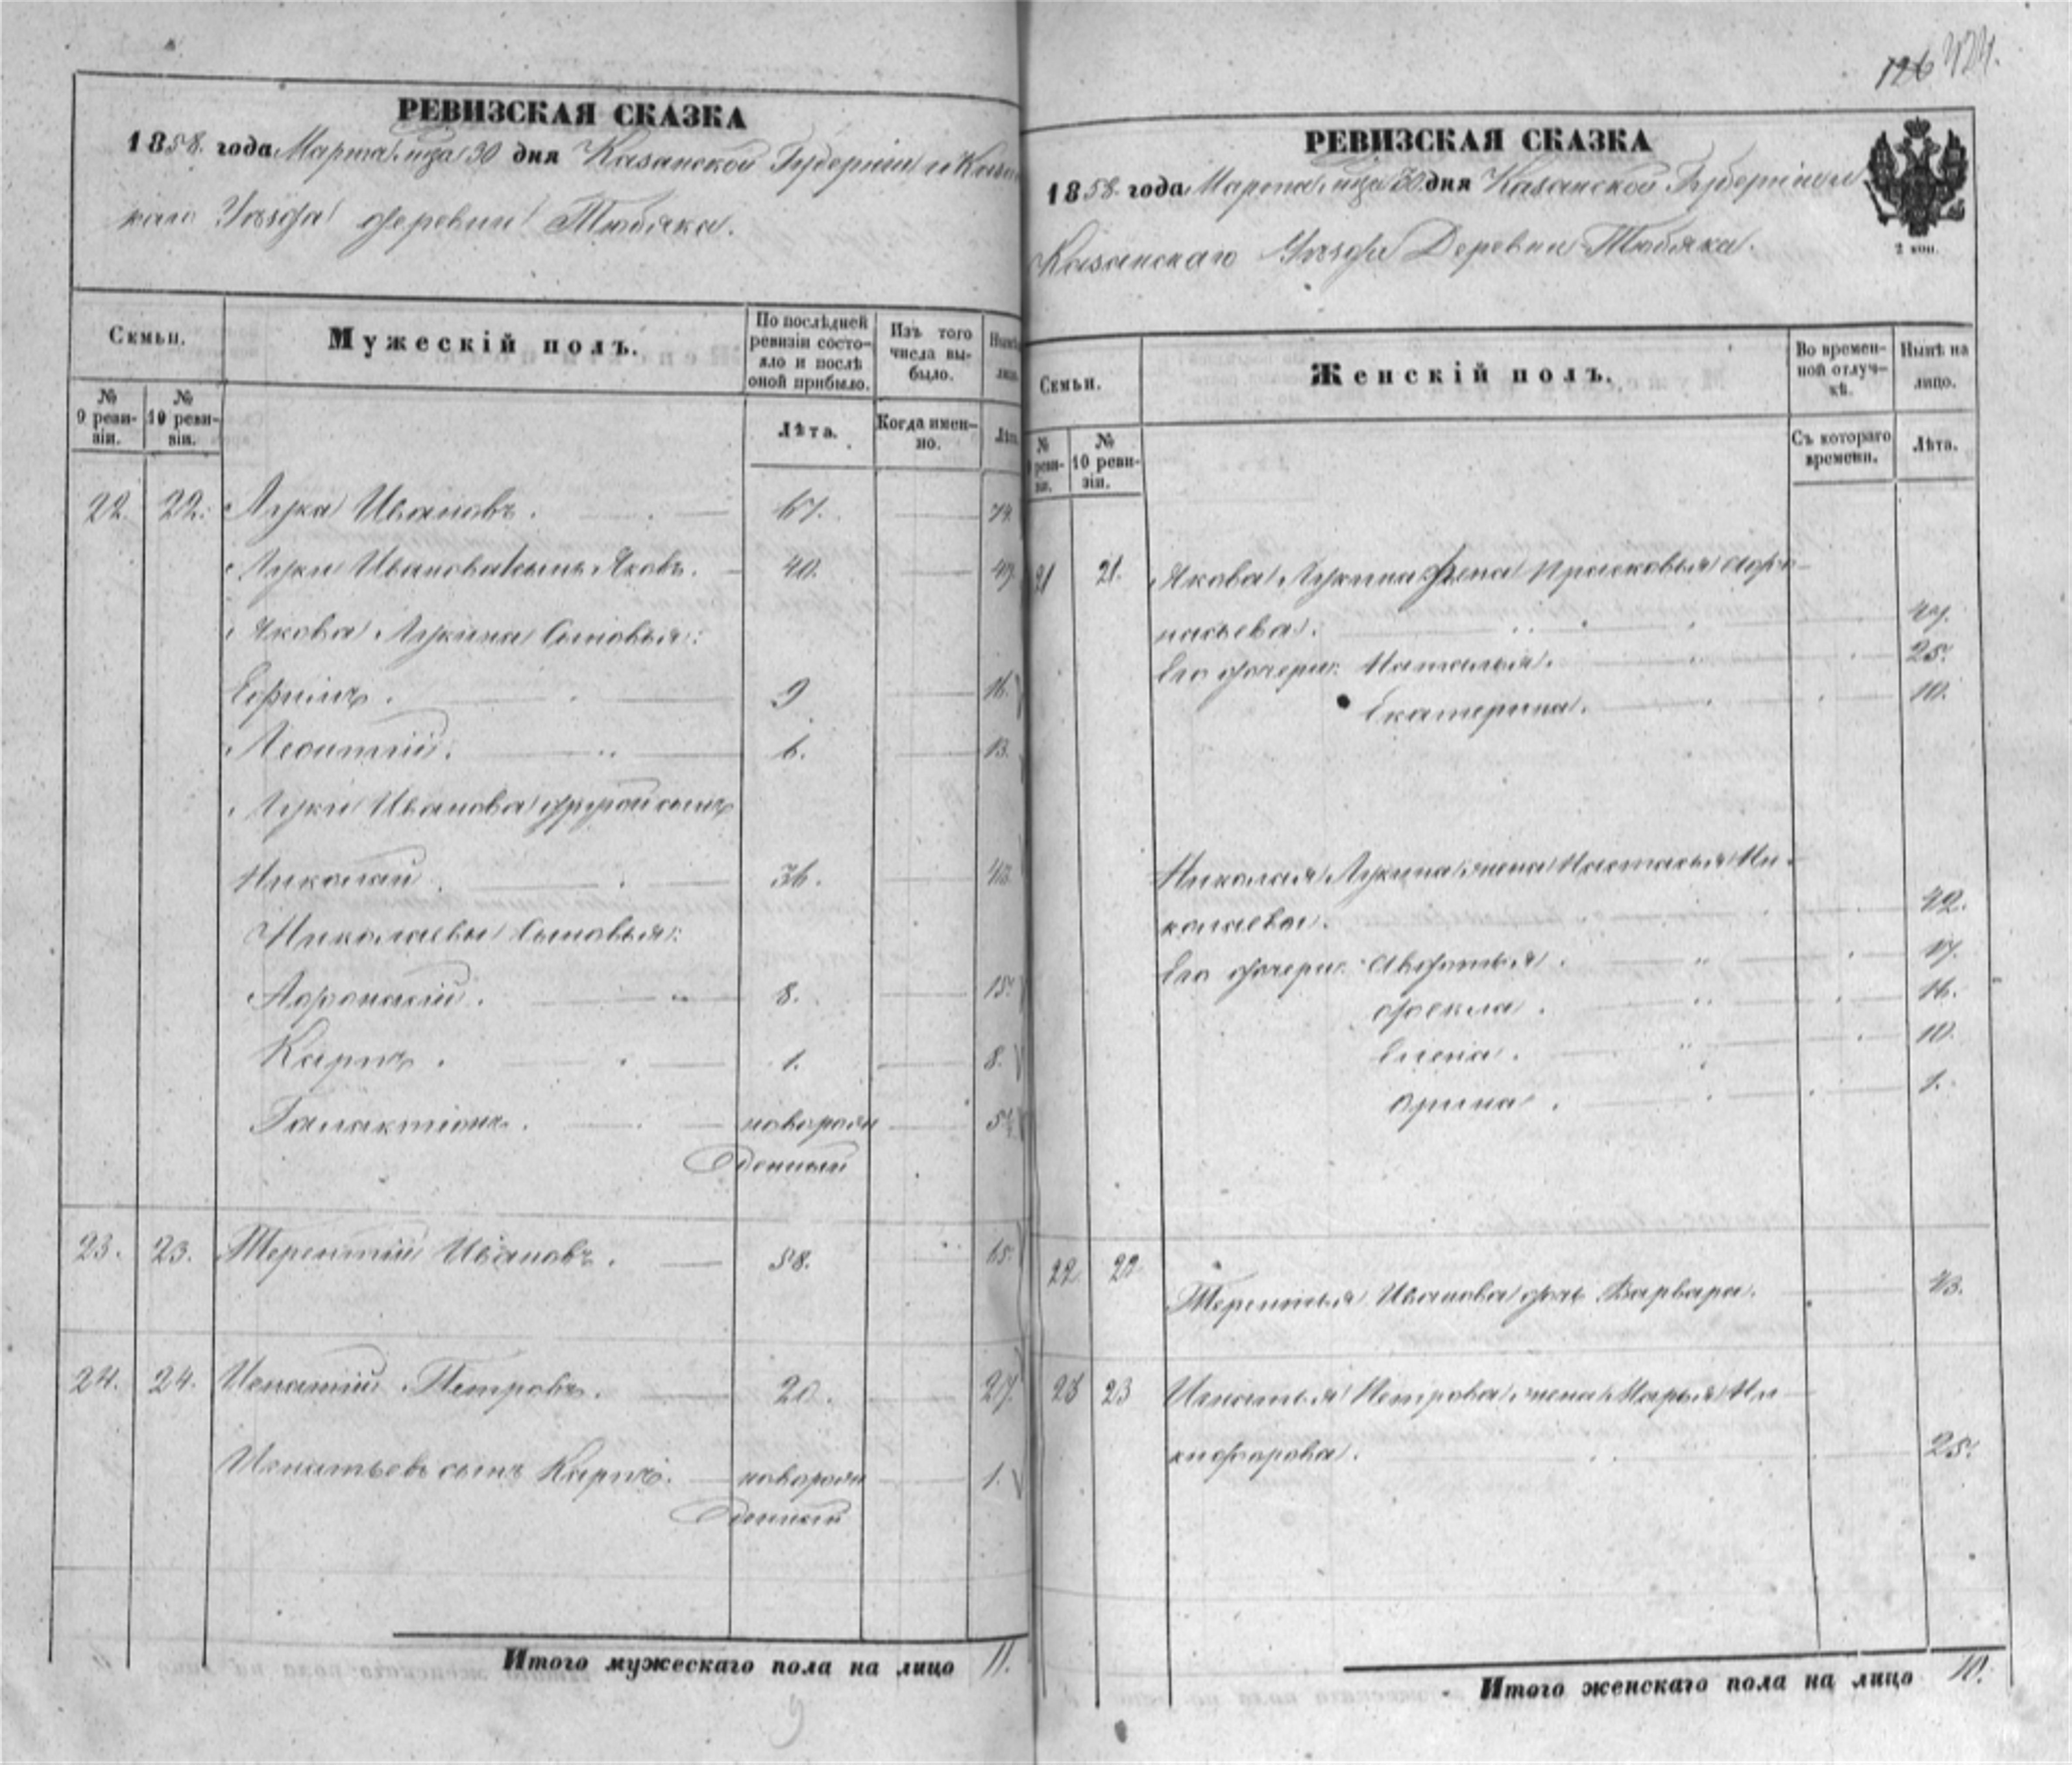 126 424.
РЕВИЗСКАЯ СКАЗКА
1858. года Марта мца 30 дня Казанской Губернии и Казан
каго Уѣзда деревни Тюбяка.
Семьи.
Мужескій полъ.
По послѣдней ревизіи состояло и послѣ оной прибыло.
Изъ того числа выбыло.
№ 9 ревизіи.
№ 10 ревизіи.
Лѣта.
Когда именно.
Лѣта.
22. 22. Лука Ивановъ. 67. 74.
Луки Иванова сынъ Яковъ. 40. 47.
Якова Лукина сыновья:
Ефимъ. 9 16.
Леонтій. 6. 13.
Луки Иванова другой сынъ
Николай 36. 43.
Николаевы сыновья:
Афонасій. 8. 15.
Карпъ. 1. 8.
Галактіонъ. новорож
денный
23. 23. Терентій Ивановъ. 58. 65.
24. 24. Игнатій Петровъ. 20. 27.
Игнатьевъ сынъ Карпъ. новорож 1.
денный
Итого мужескаго пола на лицо 11.
РЕВИЗСКАЯ СКАЗКА
1858. года Марта мца 30 дня Казанской Губерніи и
Казанскаго Уѣзда Деревни Тюбяка.
2 коп.
Семьи.
Женскій полъ.
Во временной отлучкѣ.
Нынѣ на лицо.
№ 10 ревизіи.
Съ котораго времени.
Лѣта.
21 21. Якова Лукина жена Прасковья Афо-
насьева. 47.
Его дочери: Наталья. 25.
Екатерина. 10.
Николая Лукина жена Настасья Ни-
колаева. 42.
Его дочери: Авдотья. 17.
Фекла. 16.
Елена. 10.
Орина. 1.
22 22 Терентья Иванова дочь Варвара. 43.
23 23 Игнатья Петрова жена Марья Ни-
кифорова. 25.
Итого женскаго пола на лицо 10.